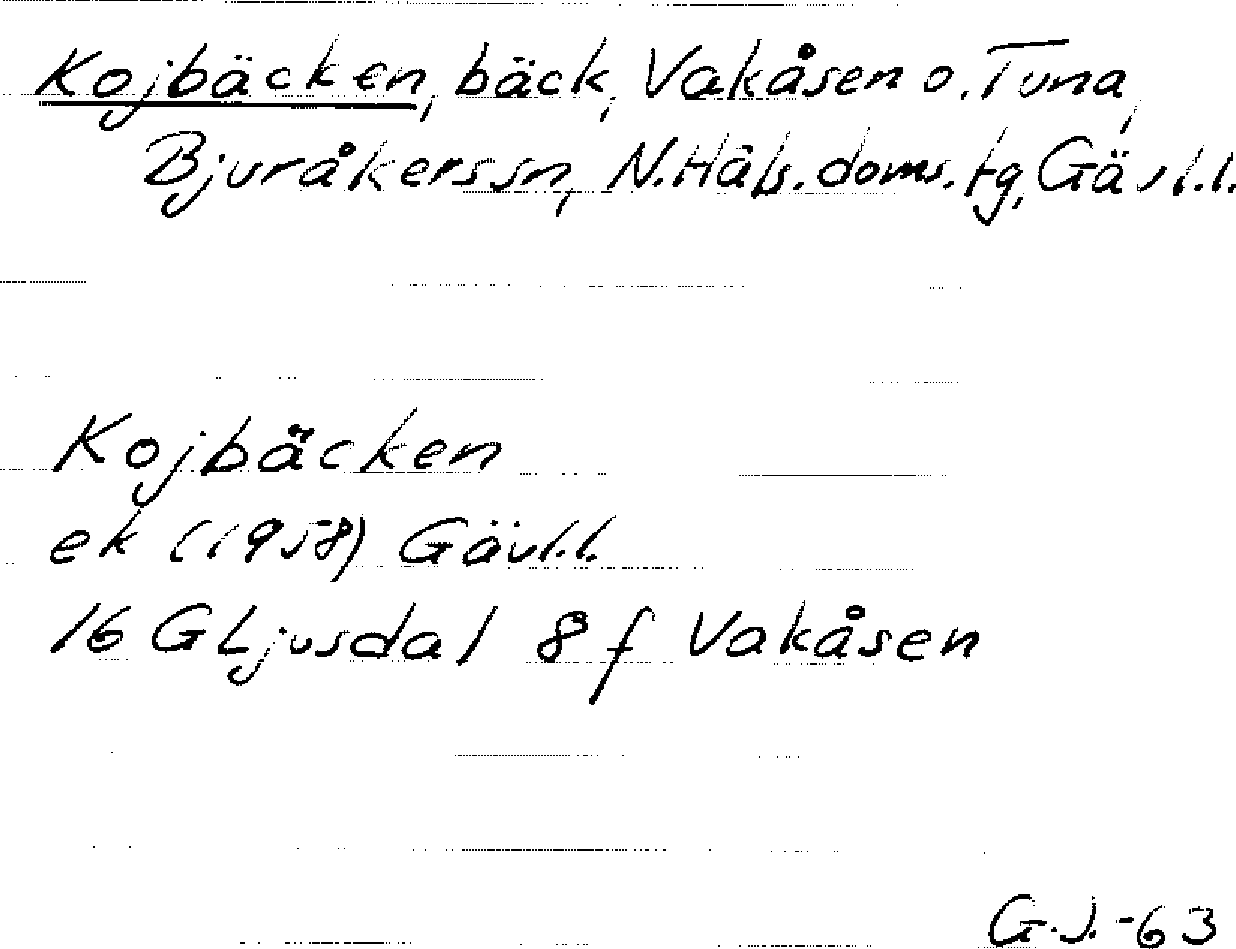 Kojbäcken, bäck, Vakåsen o. Tuna,
Bjuråkers sn, N. Häls. doms. tg, Gävl. l.
Kojbäcken
ek (1958) Gävl. l.
16 G Ljusdal 8 f Vakåsen
G.J. -63